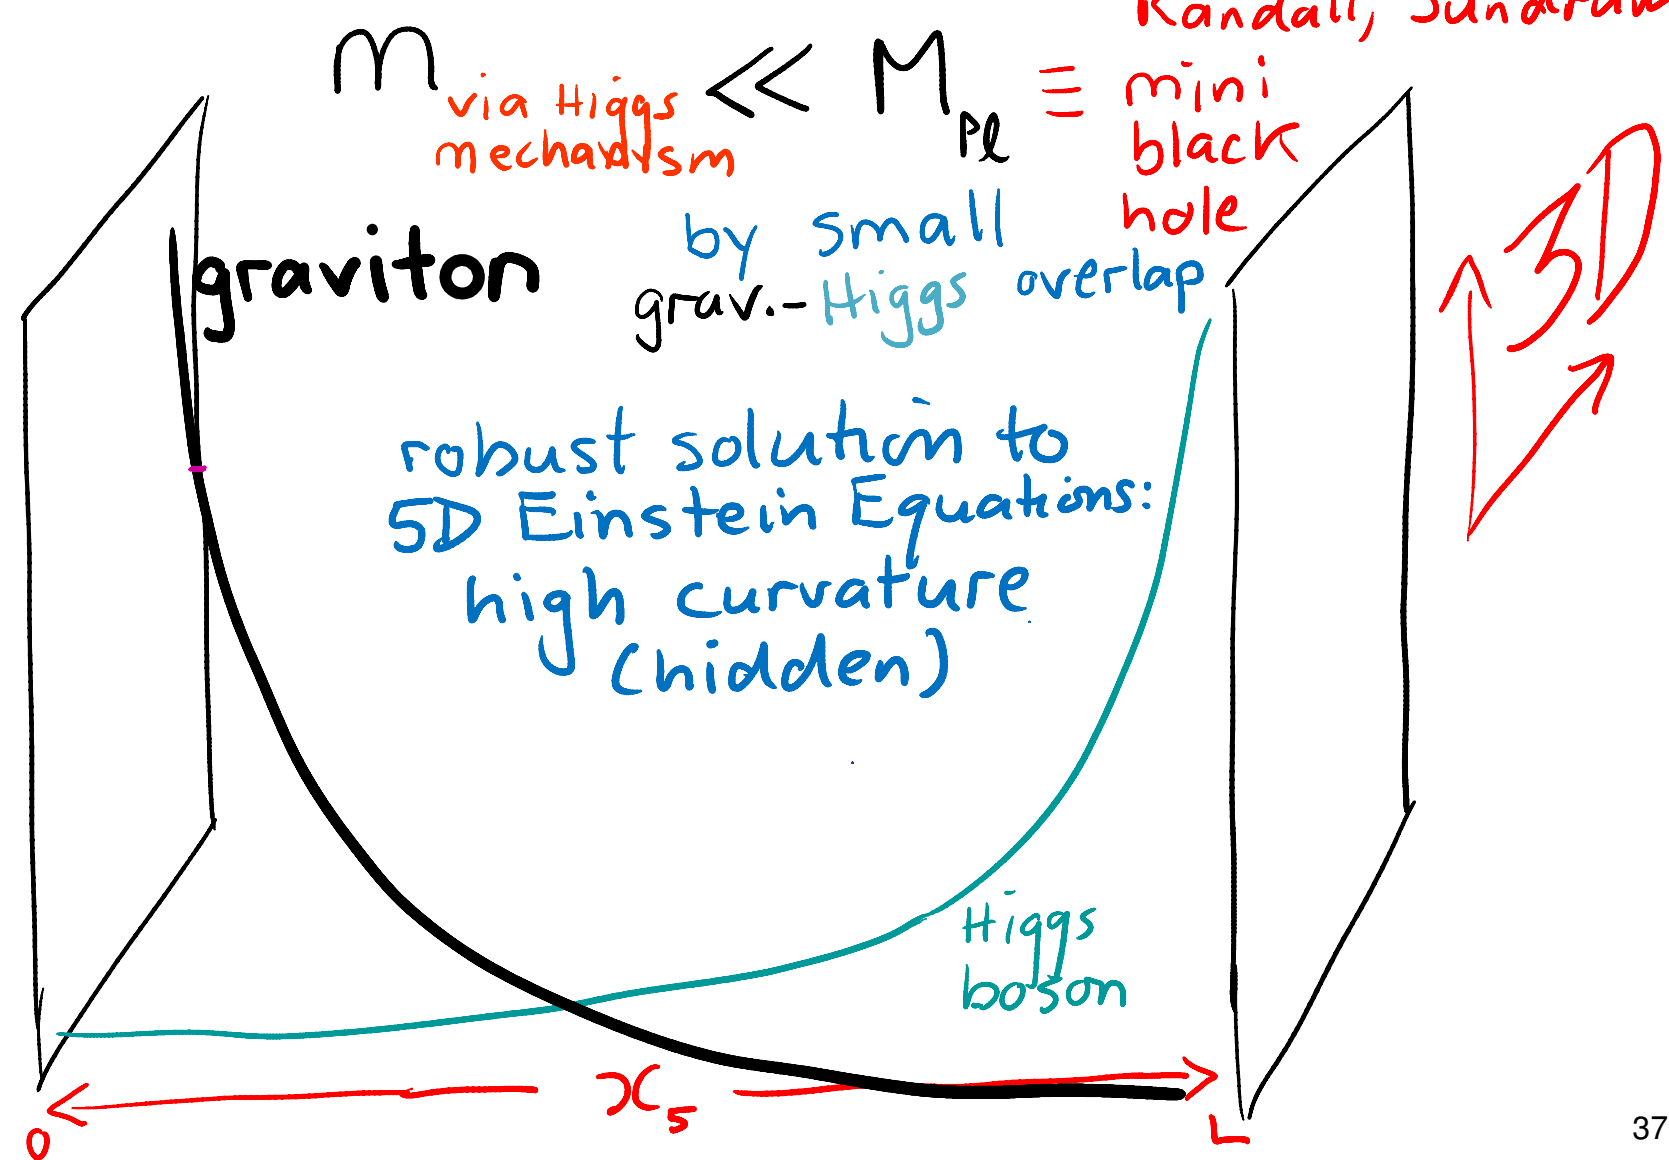 Randall, Sundrum
m via Higgs mechanism << M Pl ≡ mini black hole
3D
graviton
by small
grav.-Higgs overlap
robust solution to
5D Einstein Equations:
high curvature
(hidden)
Higgs
boson
x5
0
L
37